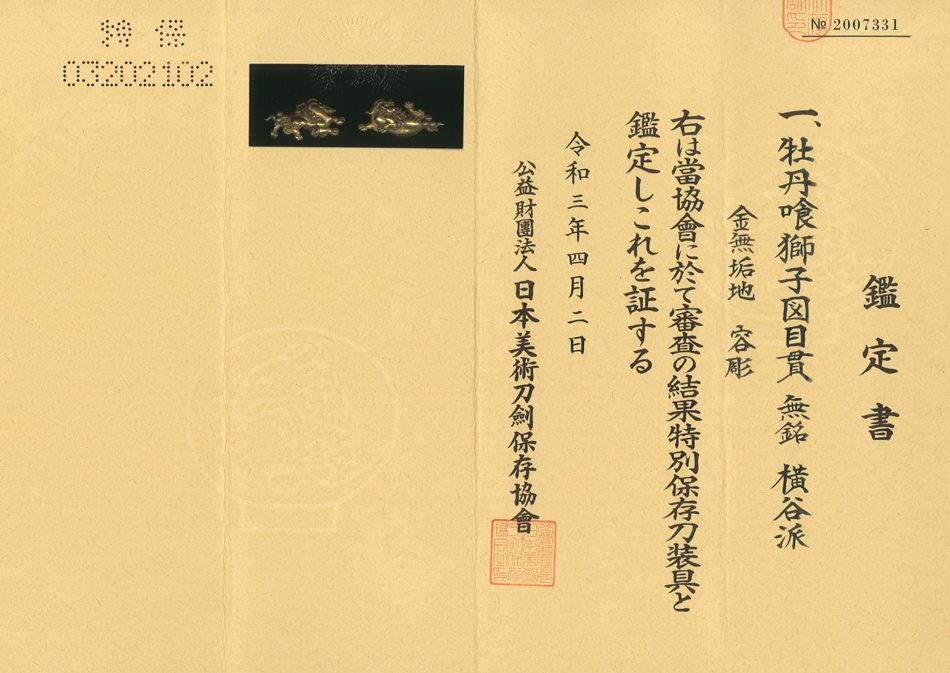 № 2007331
鑑定書
一、牡丹喰獅子図目貫 無銘 横谷派
金無垢地 容彫
右は當協會に於て審査の結果特別保存刀装具と
鑑定しこれを証する
令和三年四月二日
公益財團法人 日本美術刀劍保存協會
特保
03202102